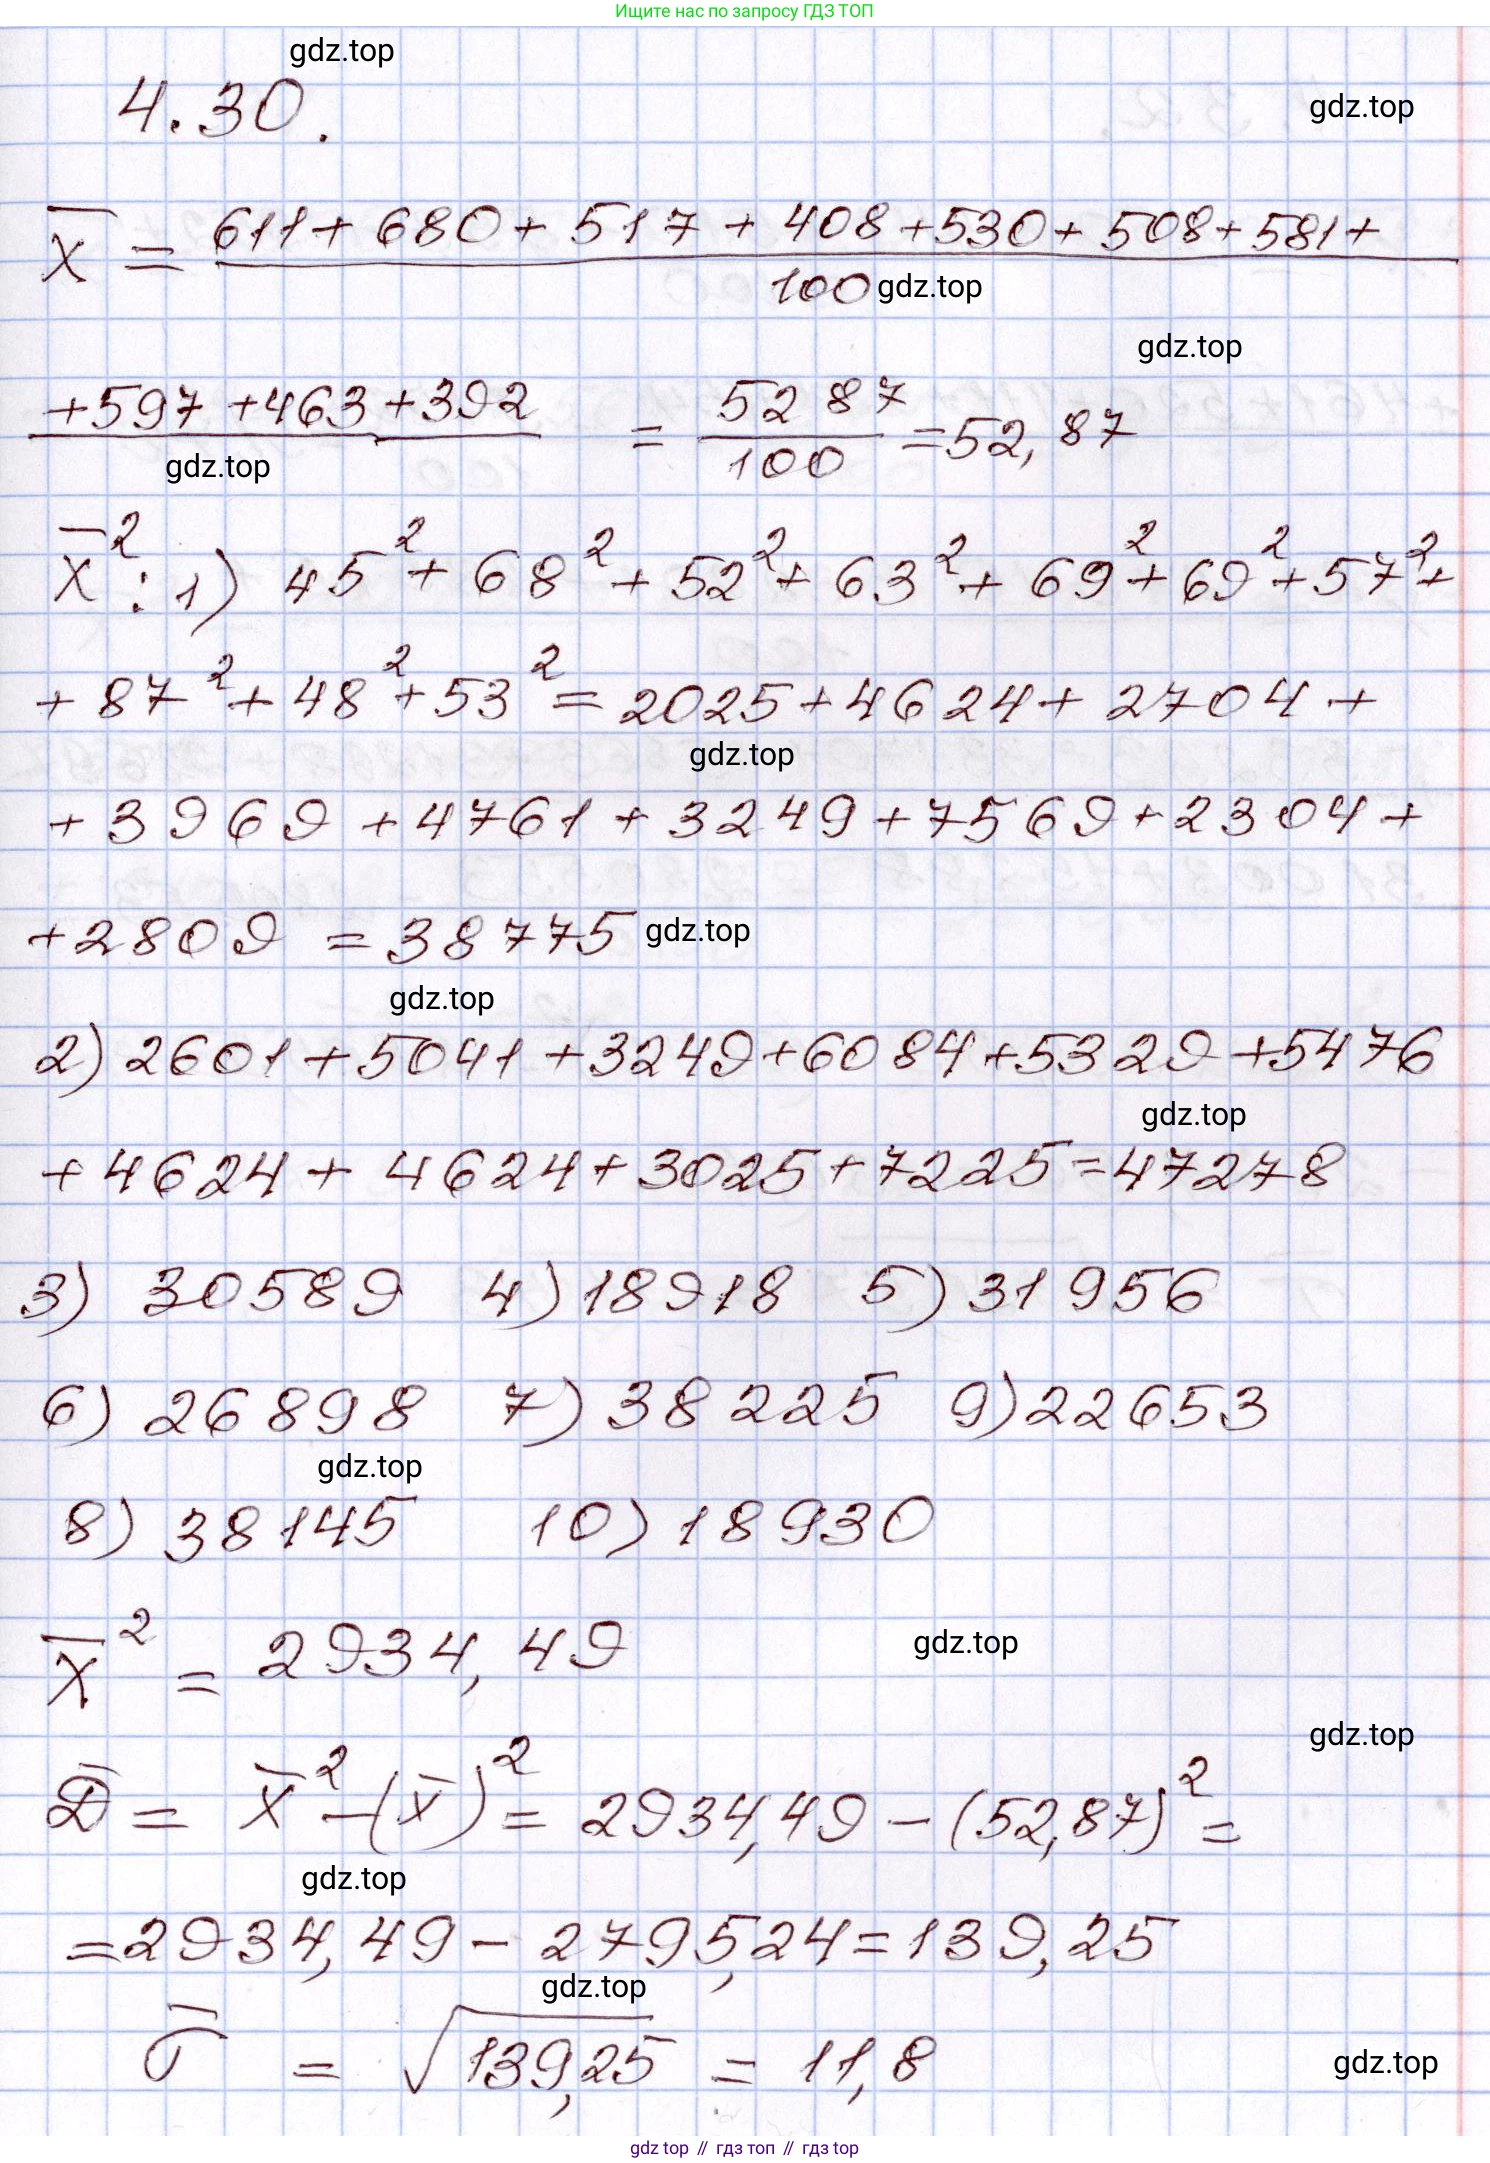 Ищите нас по запросу ГДЗ ТОП
gdz.top
4.30.
gdz.top
x̄ = (611 + 680 + 517 + 408 + 530 + 508 + 581 +
100 gdz.top
gdz.top
+597 +463 +392 = 5287/100 = 52,87
gdz.top
x̄²: 1) 45² + 68² + 52² + 63² + 69² + 69² + 57² +
+ 87² + 48² + 53² = 2025 + 4624 + 2704 +
gdz.top
+ 3969 + 4761 + 3249 + 7569 + 2304 +
+2809 = 38775 gdz.top
gdz.top
2) 2601 + 5041 + 3249 + 6084 + 5329 + 5476
gdz.top
+ 4624 + 4624 + 3025 + 7225 = 47278
3) 30589 4) 18918 5) 31956
6) 26898 7) 38225 9) 22653
gdz.top
8) 38145 10) 18930
x̄² = 2934,49
gdz.top
gdz.top
D̄ = x̄² - (x̄)² = 2934,49 - (52,87)² =
gdz.top
= 2934,49 - 2795,24 = 139,25
gdz.top
σ̄ = √139,25 = 11,8
gdz.top
gdz top // гдз топ // gdz top